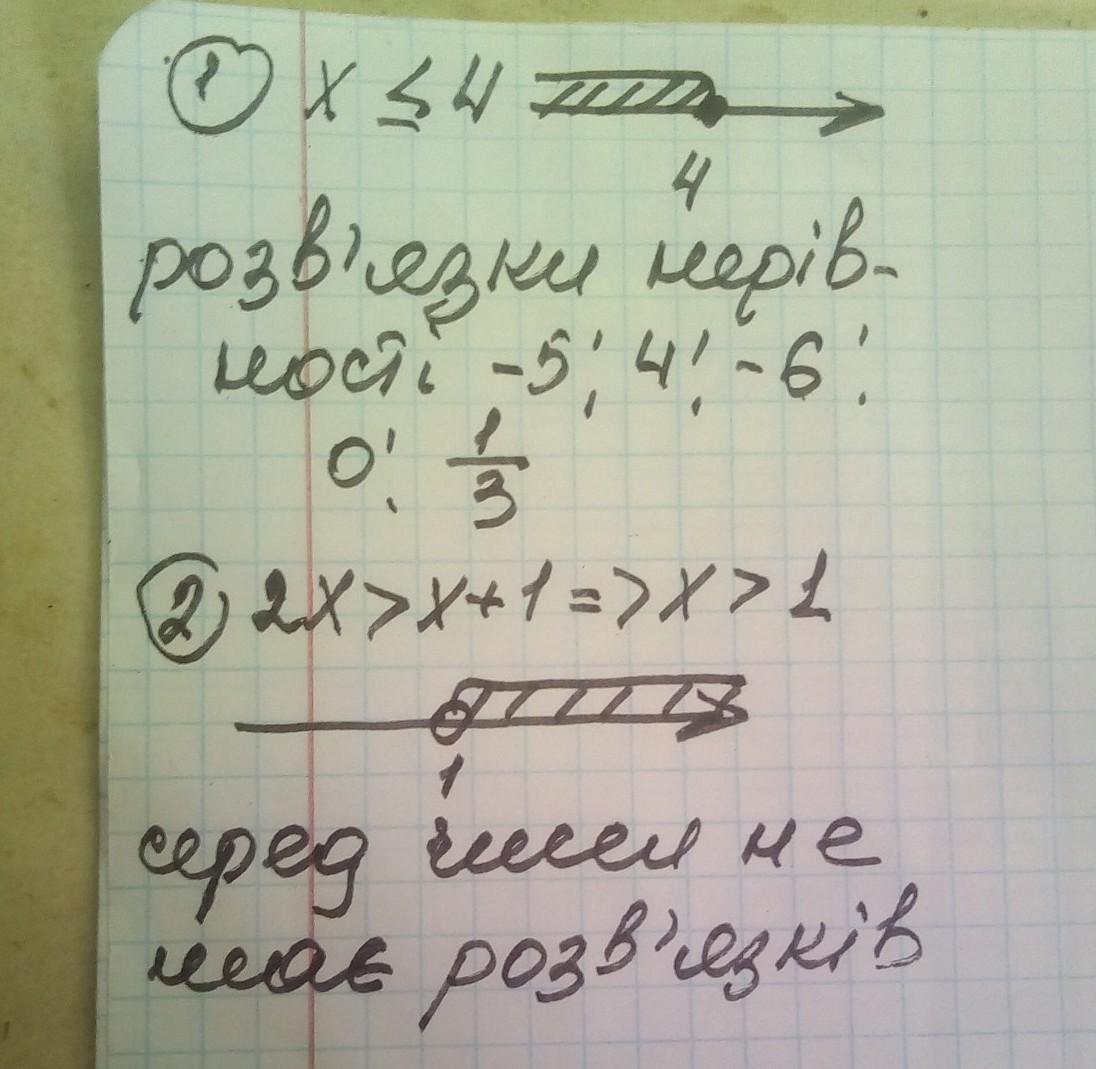 1 x ≤ 4
4
розв'язки нерів-
ності -5; 4; -6;
0; 1/3
2 2x > x+1 => x > 1
1
серед чисел не
має розв'язків